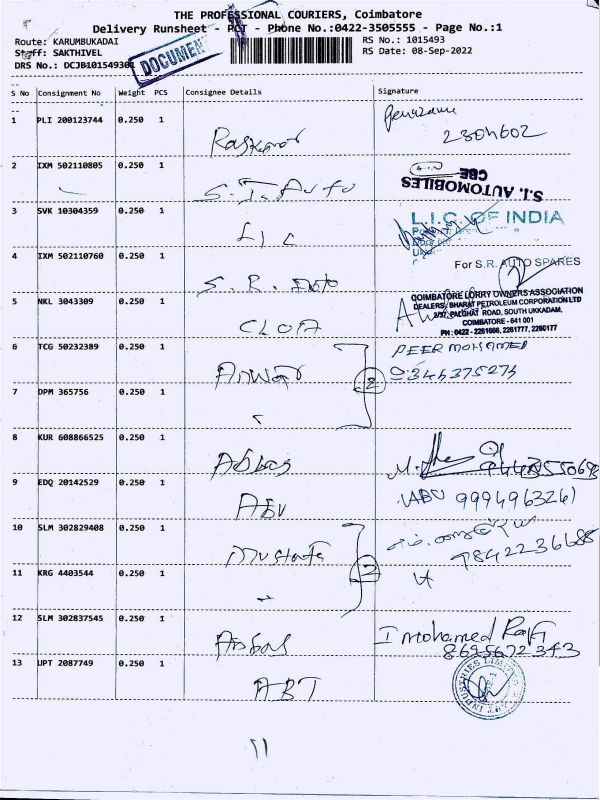 THE PROFESSIONAL COURIERS, Coimbatore
Delivery Runsheet - PCT - Phone No.:0422-3505555 - Page No.:1
Route: KARUMBUKADAI
RS No.: 1015493
Staff: SAKTHIVEL
RS Date: 08-Sep-2022
DRS No.: DCJB101549301
DOCUMENT
S No Consignment No Weight PCS Consignee Details Signature
1 PLI 200123744 0.250 1 Rajkumar
2304602
2 IXM 502110805 0.250 1 S.I. Auto
S.I. AUTOMOBILES
CBE
3 SVK 10304359 0.250 1 LIC
L.I.C. OF INDIA
4 IXM 502110760 0.250 1 S. R. Auto
For S.R. AUTO SPARES
5 NKL 3043309 0.250 1 CLOA
COIMBATORE LORRY OWNERS ASSOCIATION
DEALERS: BHARAT PETROLEUM CORPORATION LTD
2/37, PALGHAT ROAD, SOUTH UKKADAM,
COIMBATORE - 641 001
PH : 0422 - 2261666, 2261777, 2260177
6 TCG 50232389 0.250 1 Anwar
2
PEER MOHAMED
9344375274
7 DPM 365756 0.250 1
8 KUR 608866525 0.250 1 Abbas
9 EDQ 20142529 0.250 1 ABU
ABU 9994963261
10 SLM 302829408 0.250 1 Mustafa
2
9842236685
11 KRG 4403544 0.250 1
12 SLM 302837545 0.250 1 Abbas
I mohamed Rafi
8695672343
13 UPT 2087749 0.250 1 ABT
11